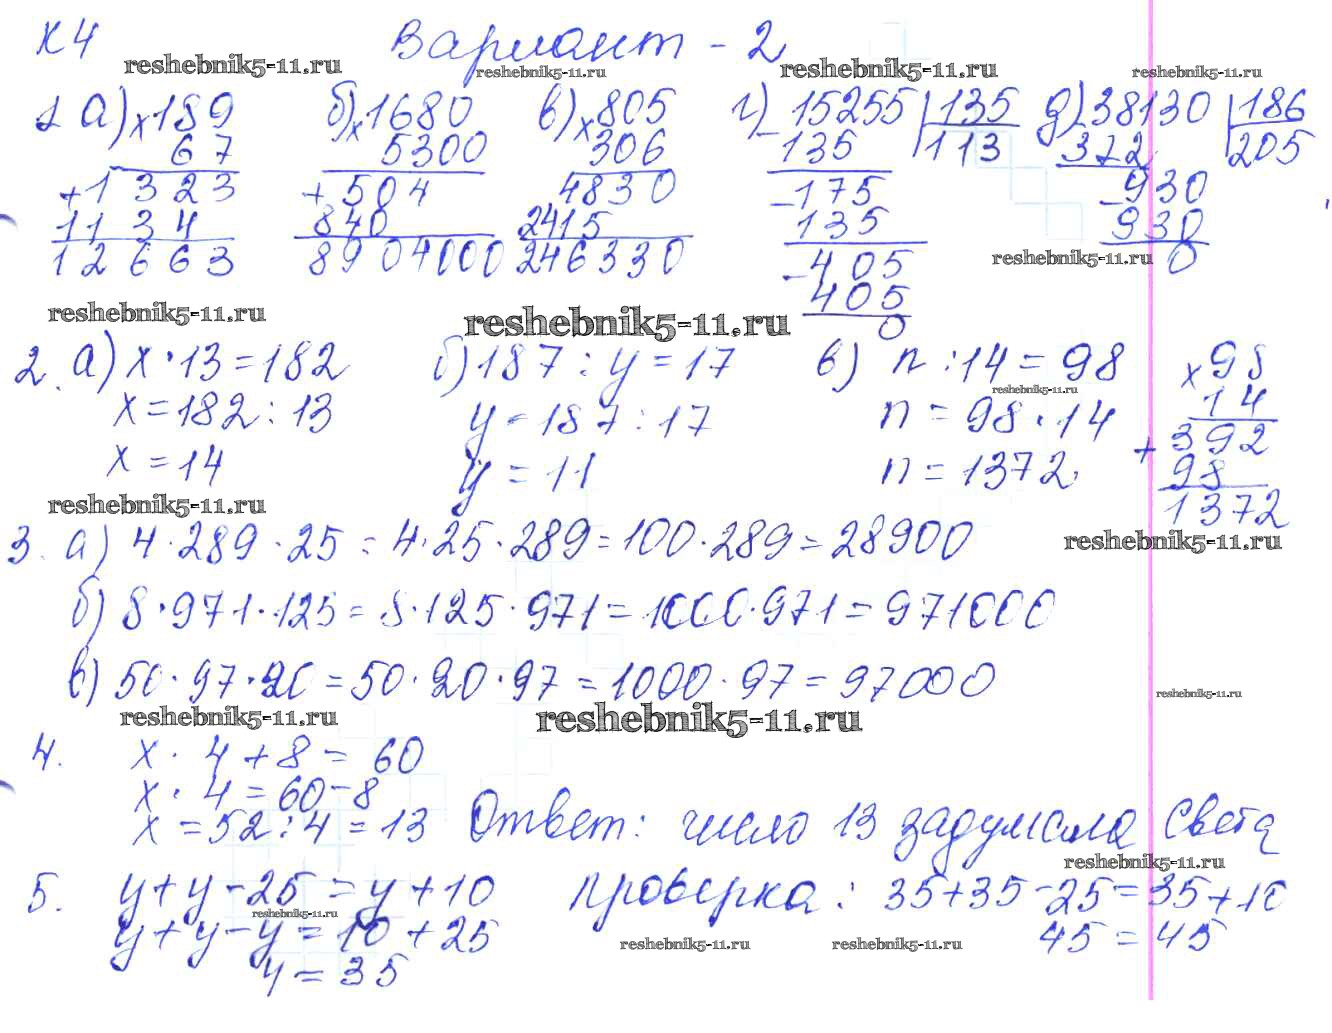 К4 Вариант - 2
reshebnik5-11.ru reshebnik5-11.ru reshebnik5-11.ru reshebnik5-11.ru
1 а) x189 б) x1680 в) x805 г) -15255 | 135 д) -38130 | 186
67 5300 306 135 113 372 205
+1323 +504 4830 -175 -930
1134 840 2415 135 930
12663 8904000 246330 -405 0
reshebnik5-11.ru
405
0
reshebnik5-11.ru reshebnik5-11.ru
2. а) x · 13 = 182 б) 187 : y = 17 в) n : 14 = 98 x98
reshebnik5-11.ru
x = 182 : 13 y = 187 : 17 n = 98 · 14 14
x = 14 y = 11 n = 1372. +392
98
1372
reshebnik5-11.ru
3. а) 4 · 289 · 25 = 4 · 25 · 289 = 100 · 289 = 28900
reshebnik5-11.ru
б) 8 · 971 · 125 = 8 · 125 · 971 = 1000 · 971 = 971000
в) 50 · 97 · 20 = 50 · 20 · 97 = 1000 · 97 = 97000
reshebnik5-11.ru reshebnik5-11.ru reshebnik5-11.ru
4. x · 4 + 8 = 60
x · 4 = 60 - 8
x = 52 : 4 = 13 Ответ: число 13 задумала Света
reshebnik5-11.ru
5. y + y - 25 = y + 10 проверка: 35 + 35 - 25 = 35 + 10
reshebnik5-11.ru
y + y - y = 10 + 25 45 = 45
reshebnik5-11.ru reshebnik5-11.ru
y = 35